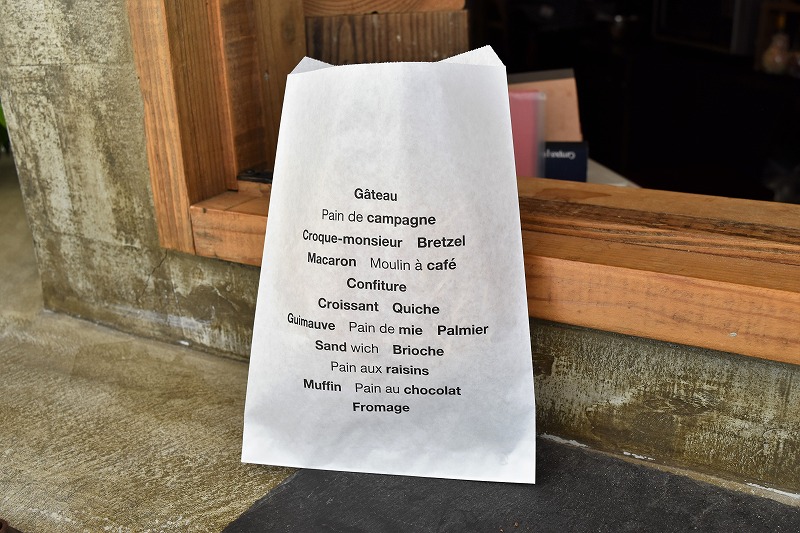 Gâteau
Pain de campagne
Croque-monsieur Bretzel
Macaron Moulin à café
Confiture
Croissant Quiche
Guimauve Pain de mie Palmier
Sand wich Brioche
Pain aux raisins
Muffin Pain au chocolat
Fromage